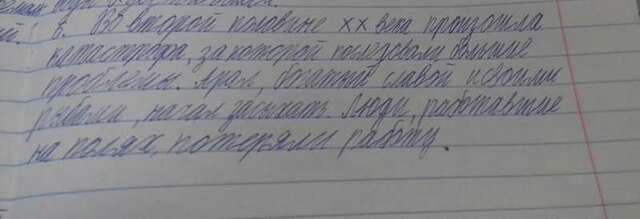 6. Во второй половине XX века произошла
катастрофа, за которой последовали большие
проблемы. Арал, богатый славой и своими
рыбами, начал засыхать. Люди, работавшие
на полях, потеряли работу.